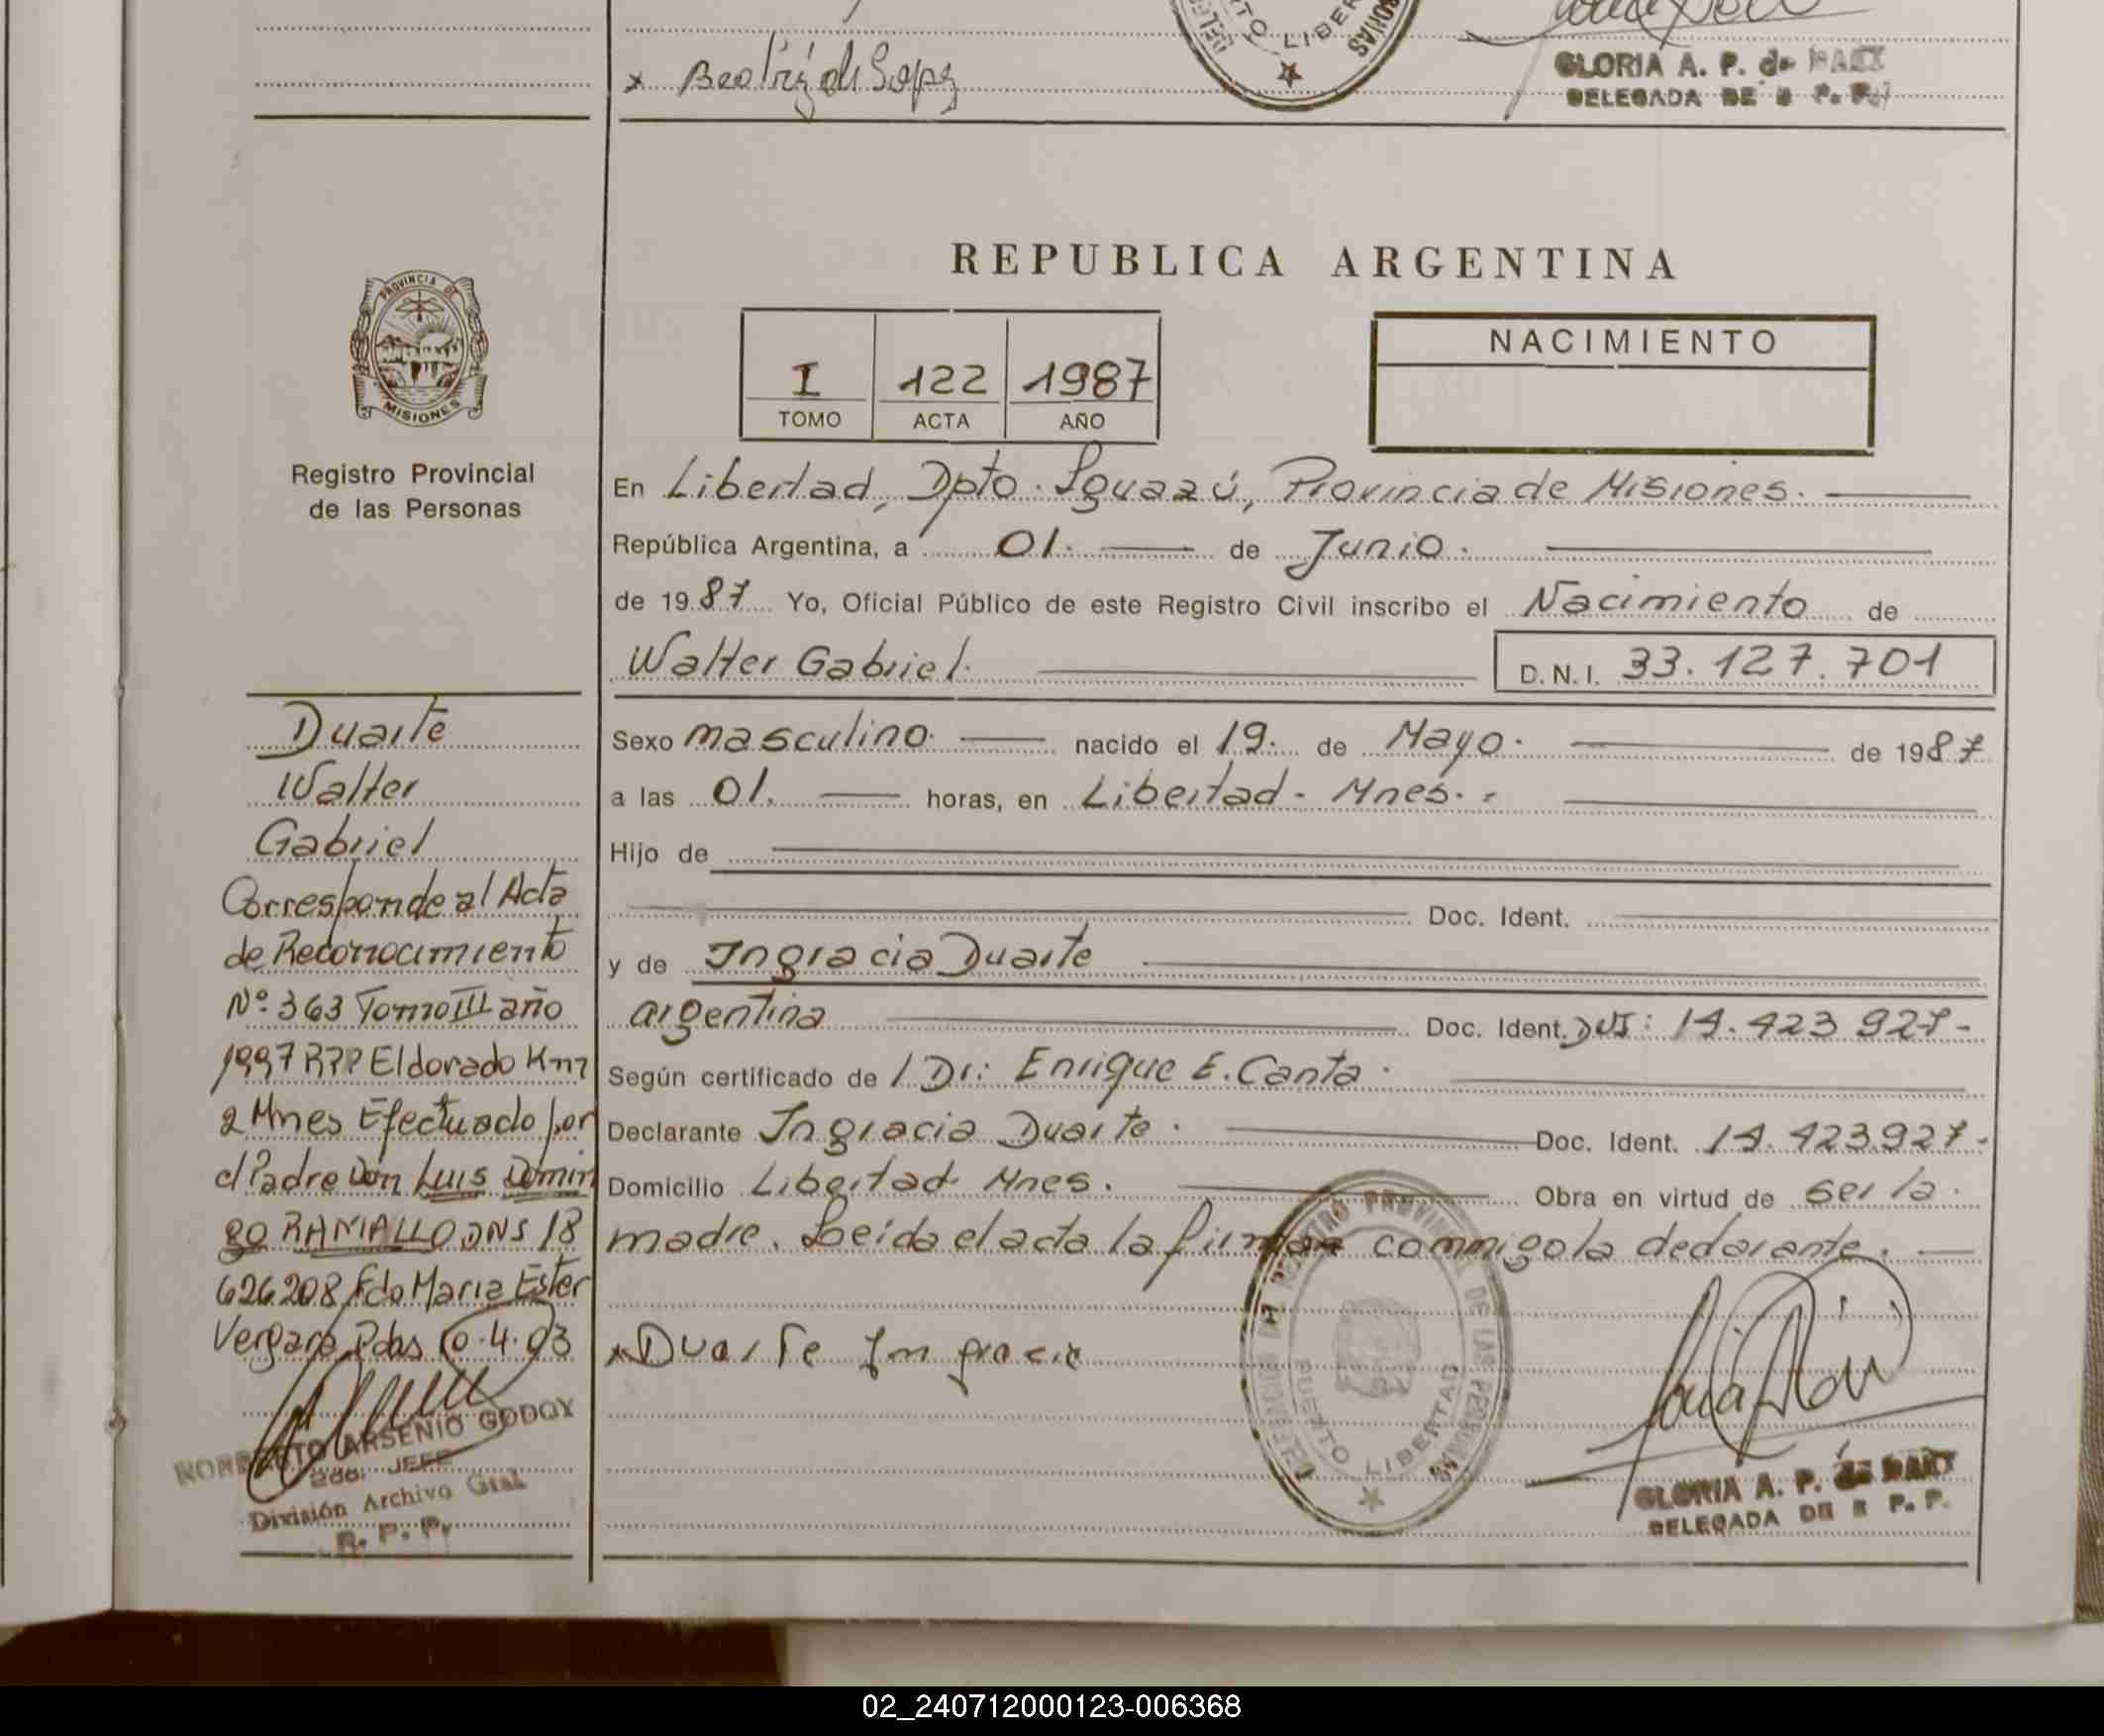 x Beatriz de Lopez
PUERTO LIBERTAD
GLORIA A. P. de
DELEGADA DE R P. P.
Registro Provincial
de las Personas
PROVINCIA DE
MISIONES
REPUBLICA ARGENTINA
I 122 1987
TOMO ACTA AÑO
NACIMIENTO
En Libertad, Dpto. Iguazú, Provincia de Misiones.
República Argentina, a 01. de Junio.
de 1987 Yo, Oficial Público de este Registro Civil inscribo el Nacimiento de
Walter Gabriel. D.N.I. 33.127.701
Sexo masculino. nacido el 19. de Mayo. de 1987
a las 01. horas, en Libertad - Mnes.
Hijo de
Doc. Ident.
y de Ingracia Duarte
argentina Doc. Ident. DNI: 14.423.927-
Según certificado de / Dr: Enrique E. Canta.
Declarante Ingracia Duarte. Doc. Ident. 14.423.927-
Domicilio Libertad Mnes. Obra en virtud de ser la
madre. Leída el acta la firman conmigo la declarante.
x Duarte Ingracia
PUERTO LIBERTAD
GLORIA A. P. de
DELEGADA DE R P. P.
Duarte
Walter
Gabriel
Corresponde al Acta
de Reconocimiento
Nº 363 Tomo III año
1997 RPP Eldorado Km
2 Mnes Efectuado por
el Padre Don Luis Domin
go RAMALLO DNI 18
626208 Fdo Maria Ester
Vergara Pdas 10.4.03
NORBERTO ARSENIO GODOY
2do. JEFE
División Archivo Gral
R. P. P.
02_240712000123-006368